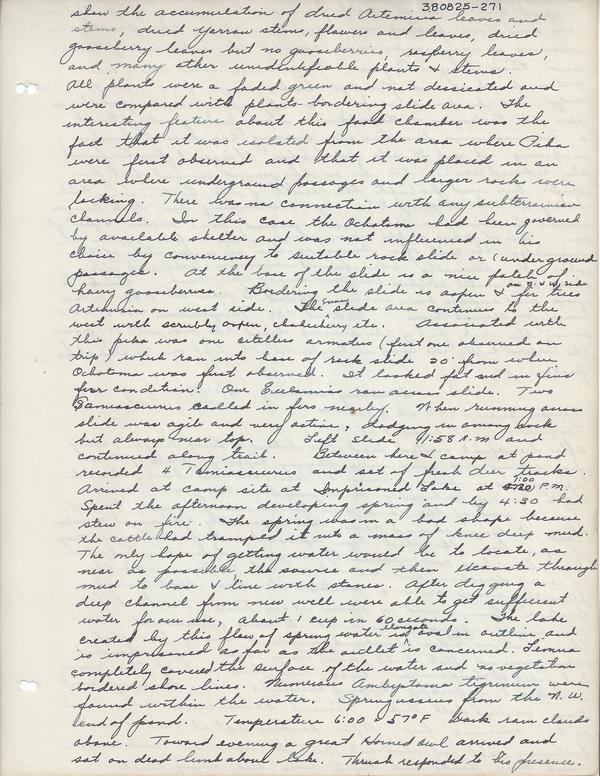 380825-271
show the accumulation of dried Artemisia leaves and
stems, dried yarrow stems, flowers and leaves, dried
gooseberry leaves but no gooseberries, raspberry leaves,
and many other unidentifiable plants & stems.
All plants were a faded green and not dessicated and
were compared with plants bordering slide area. The
interesting feature about this food chamber was the
fact that it was isolated from the area where Pika
were first observed and that it was placed in an
area where underground passages and larger rocks were
lacking. There was no connection with any subterranian
channels. In this case the Ochotona had been governed
by available shelter and was not influenced in his
choice by conveniency to suitable rock slide or (underground
passages. At the base of the slide is a nice patch of
hairy gooseberries. Bordering the slide is aspen & fir trees on N. & W. side
Artemisia on west side. The slide area continues to the
west with scrubby aspen, chokecherry etc. Associated with
this pika was one citellus armatus (first one observed on
trip) which ran into base of rock slide 20' from where
Ochotona was first observed. It looked fat and in fine
fur condition. One Eutamias ran across slide. Two
Tamiasciurus called in firs nearby. When running across
slide was agile and very active, dodging in among rocks
but always near top. Left slide 11:58 A.M. and
continued along trail. Between here & camp at pond
recorded 4 Tamiasciurus and set of fresh deer tracks.
Arrived at camp site at Imprisoned Lake at 1:00 P.M.
Spent the afternoon developing spring and by 4:30 had
stew on fire. The spring was in a bad shape because
the cattle had trampled it into a mass of knee deep mud.
The only hope of getting water would be to locate, as
near as possible the source and then excavate through
mud to base & line with stones. After digging a
deep channel from new well were able to get sufficient
water for our use, about 1 cup in 60 seconds. The lake
created by this flow of spring water is elongate oval in outline and
is imprisoned as far as the outlet is concerned. Lemna
completely covered the surface of the water and no vegetation
bordered shore lines. Numerous Ambystoma tigrinum were
found within the water. Spring issues from the N.W.
end of pond. Temperature 6:00 - 57°F dark rain clouds
above. Toward evening a great Horned owl arrived and
sat on dead limb above lake. Thrush responded to his presence.